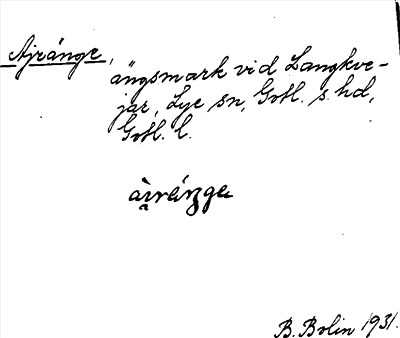 Ajränge, ängsmark vid Langkve-
jar, Lye sn, Gotl. s. hd,
Gotl. l.
B. Bolin 1931.